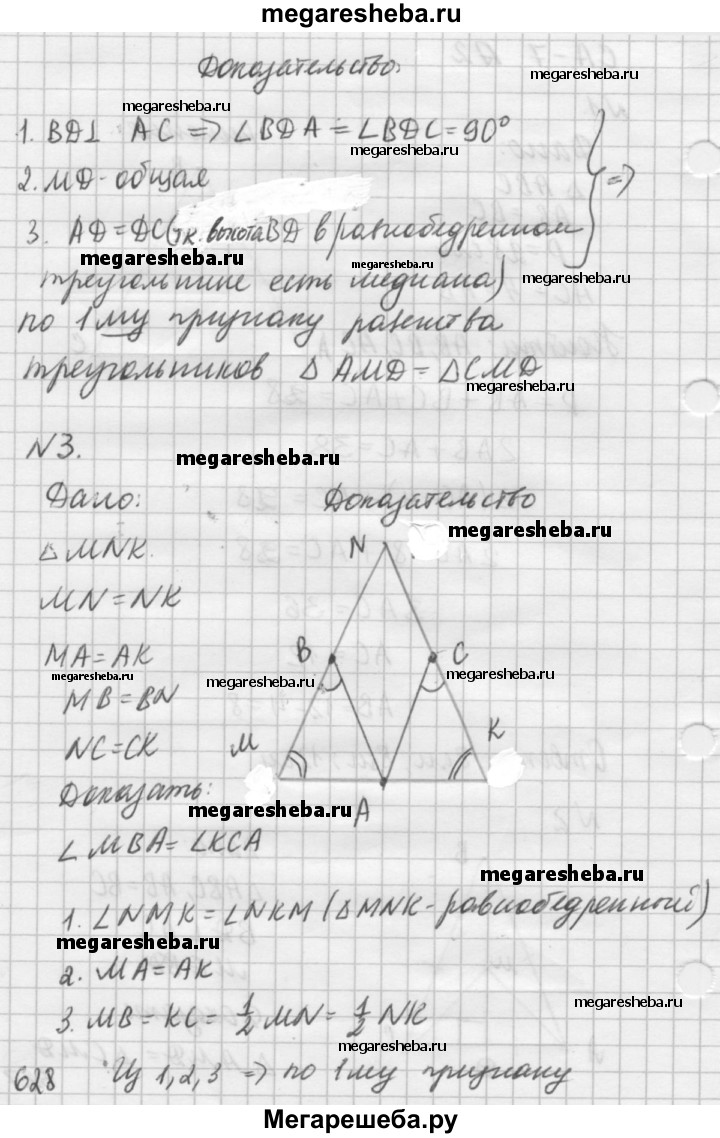 megaresheba.ru
Доказательство:
megaresheba.ru
1. BD⊥ AC => ∠BDA = ∠BDC = 90°
megaresheba.ru
megaresheba.ru
2. MD - общая
=>
3. AD = DC (т.к. высота BD в равнобедренном
megaresheba.ru
megaresheba.ru
megaresheba.ru
треугольнике есть медиана)
по 1му признаку равенства
треугольников △AMD = △CMD
megaresheba.ru
N3.
megaresheba.ru
Дано: Доказательство
megaresheba.ru
△MNK. N
MN = NK
MA = AK B C
megaresheba.ru megaresheba.ru megaresheba.ru
MB = BN
NC = CK M K
Доказать:
megaresheba.ru
A
∠MBA = ∠KCA
megaresheba.ru
1. ∠NMK = ∠NKM (△MNK - равнобедренный)
megaresheba.ru
2. MA = AK
megaresheba.ru
3. MB = KC = 1/2 MN = 1/2 NK
megaresheba.ru
628 Из 1, 2, 3 => по 1му признаку
megaresheba.ru
Мегарешеба.ру